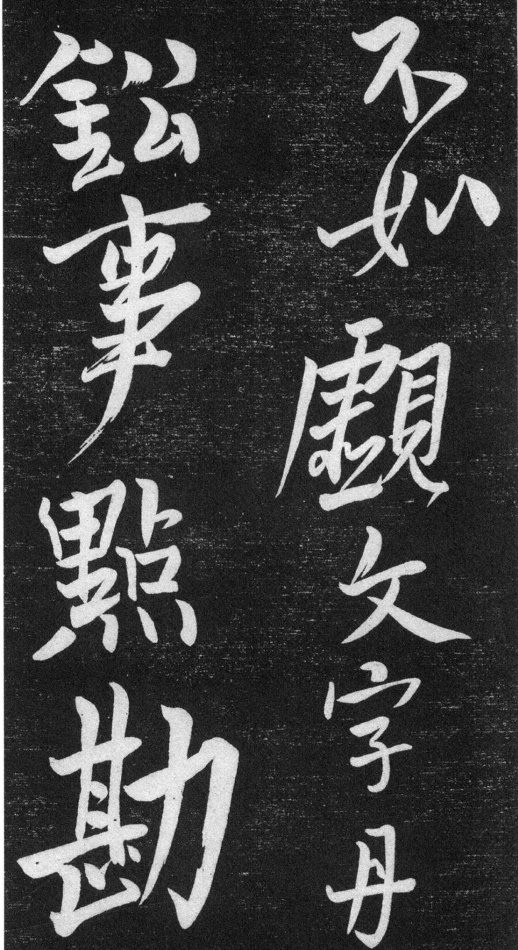 不如覷文字丹
鈆事點勘